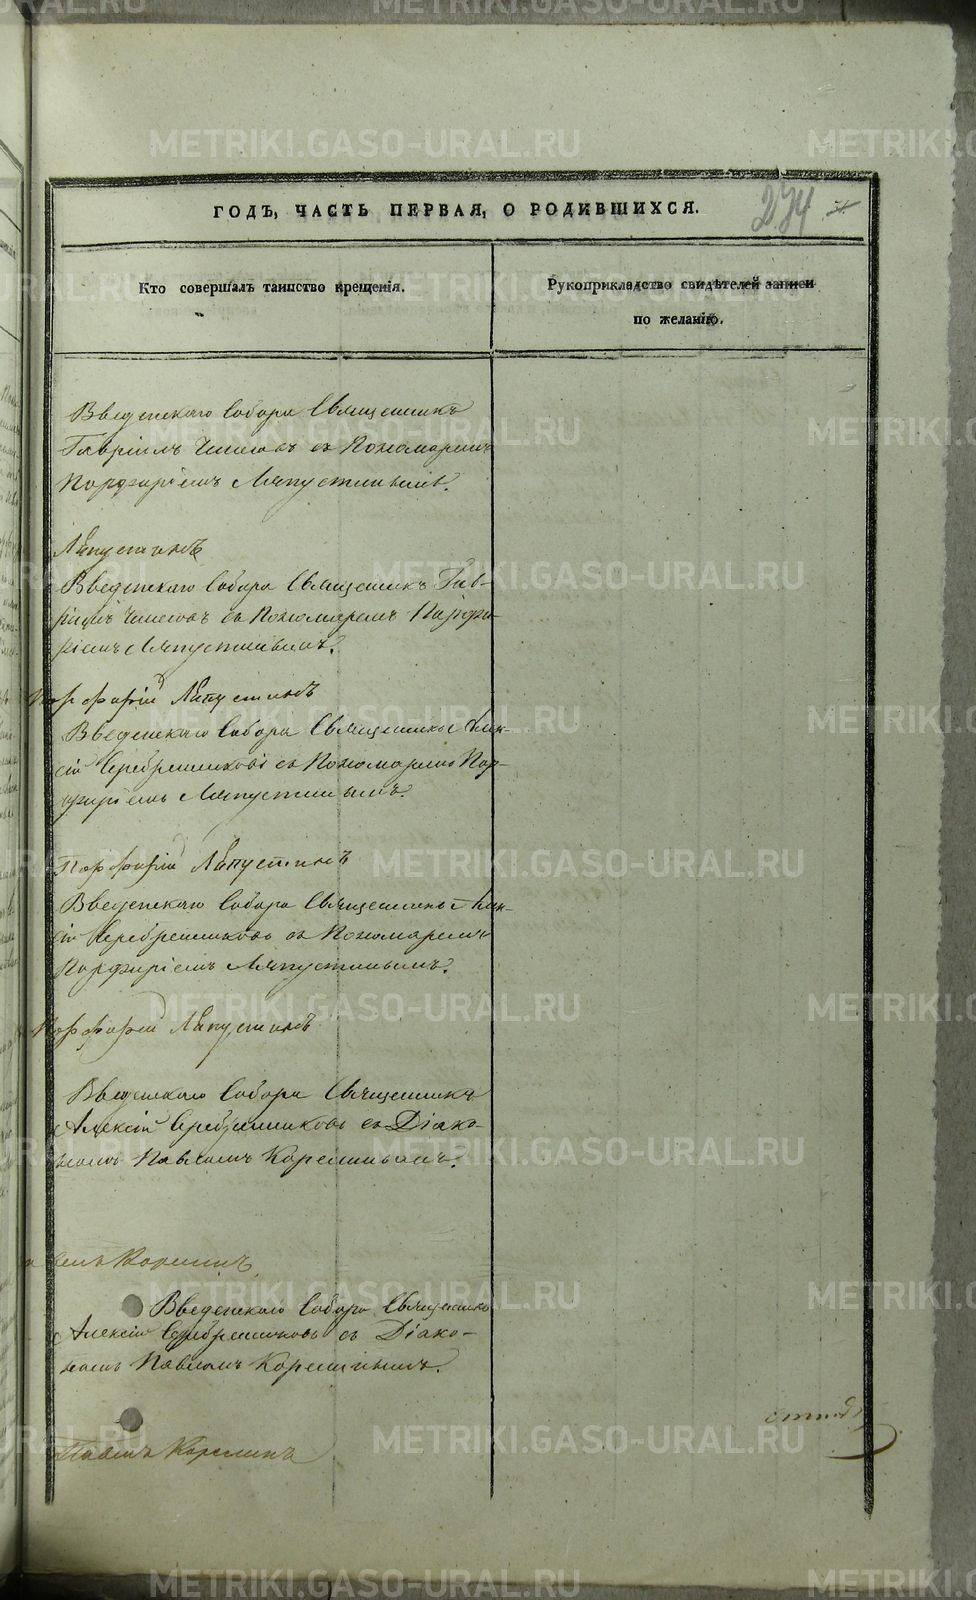 ГОДЪ, ЧАСТЬ ПЕРВАЯ, О РОДИВШИХСЯ.
274
Кто совершалъ таинство крещенія.
Рукоприкладство свидѣтелей записи
по желанію.
Введенскаго Собора Священникъ
Гавріилъ Чистовъ съ Пономаремъ
Порфиріемъ Ляпустинымъ.
Ляпустинъ
Введенскаго Собора Священникъ Гав-
ріилъ Чистовъ съ Пономаремъ Порфи-
ріемъ Ляпустинымъ.
Порфирій Ляпустинъ
Введенскаго Собора Священникъ Алек-
сій Серебренниковъ съ Пономаремъ Пор-
фиріемъ Ляпустинымъ.
Порфирій Ляпустинъ
Введенскаго Собора Священникъ Алек-
сій Серебренниковъ съ Пономаремъ
Порфиріемъ Ляпустинымъ.
Порфирій Ляпустинъ
Введенскаго Собора Священникъ
Алексій Серебренниковъ съ Діако-
номъ Павломъ Корелинымъ.
Павелъ Корелинъ
Введенскаго Собора Священникъ
Алексій Серебренниковъ съ Діако-
номъ Павломъ Корелинымъ.
Павелъ Корелинъ
METRIKI.GASO-URAL.RU